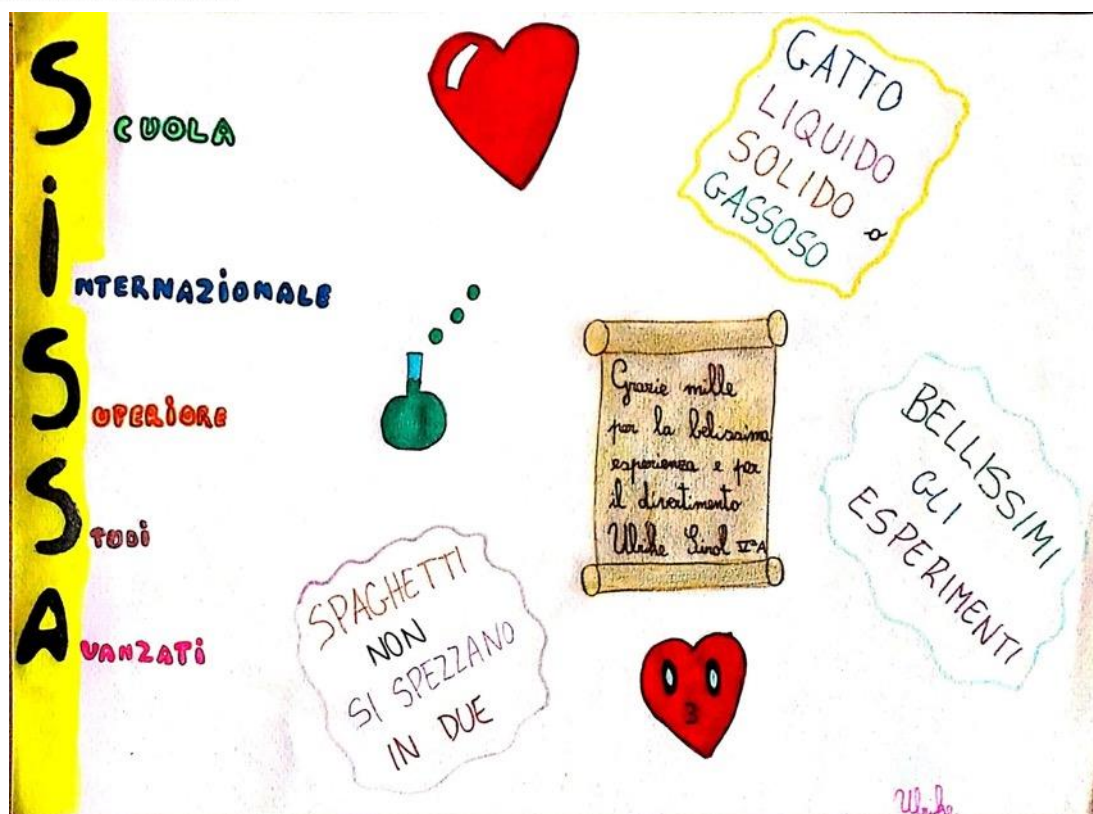 SCUOLA
INTERNAZIONALE
SUPERIORE
STUDI
AVANZATI
GATTO
LIQUIDO
SOLIDO o
GASSOSO
Grazie mille
per la belissima
esperienza e per
il divertimento
Ulrike Sirol V^a A
BELLISSIMI
GLI
ESPERIMENTI
SPAGHETTI
NON
SI SPEZZANO
IN DUE
3
Ulrike